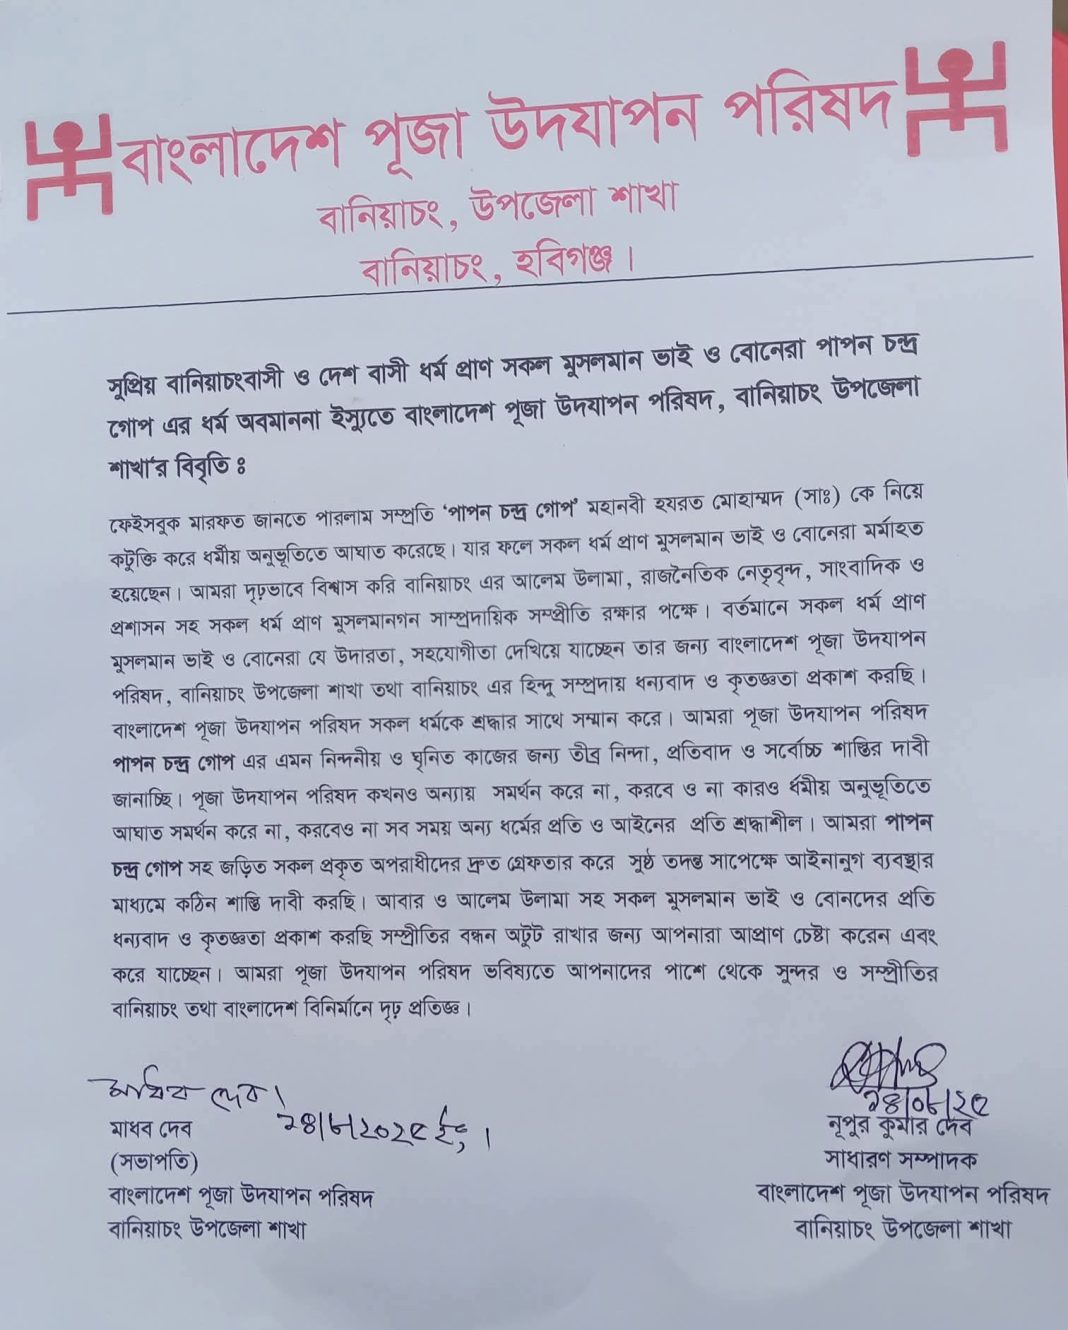 বাংলাদেশ পূজা উদযাপন পরিষদ
বানিয়াচং, উপজেলা শাখা
বানিয়াচং, হবিগঞ্জ।
সুপ্রিয় বানিয়াচংবাসী ও দেশ বাসী ধর্ম প্রাণ সকল মুসলমান ভাই ও বোনেরা পাপন চন্দ্র
গোপ এর ধর্ম অবমাননা ইস্যুতে বাংলাদেশ পূজা উদযাপন পরিষদ, বানিয়াচং উপজেলা
শাখা'র বিবৃতি ঃ
ফেইসবুক মারফত জানতে পারলাম সম্প্রতি 'পাপন চন্দ্র গোপ' মহানবী হযরত মোহাম্মদ (সাঃ) কে নিয়ে
কটুক্তি করে ধর্মীয় অনুভূতিতে আঘাত করেছে। যার ফলে সকল ধর্ম প্রাণ মুসলমান ভাই ও বোনেরা মর্মাহত
হয়েছেন। আমরা দৃঢ়ভাবে বিশ্বাস করি বানিয়াচং এর আলেম উলামা, রাজনৈতিক নেতৃবৃন্দ, সাংবাদিক ও
প্রশাসন সহ সকল ধর্ম প্রাণ মুসলমানগন সাম্প্রদায়িক সম্প্রীতি রক্ষার পক্ষে। বর্তমানে সকল ধর্ম প্রাণ
মুসলমান ভাই ও বোনেরা যে উদারতা, সহযোগীতা দেখিয়ে যাচ্ছেন তার জন্য বাংলাদেশ পূজা উদযাপন
পরিষদ, বানিয়াচং উপজেলা শাখা তথা বানিয়াচং এর হিন্দু সম্প্রদায় ধন্যবাদ ও কৃতজ্ঞতা প্রকাশ করছি।
বাংলাদেশ পূজা উদযাপন পরিষদ সকল ধর্মকে শ্রদ্ধার সাথে সম্মান করে। আমরা পূজা উদযাপন পরিষদ
পাপন চন্দ্র গোপ এর এমন নিন্দনীয় ও ঘৃনিত কাজের জন্য তীব্র নিন্দা, প্রতিবাদ ও সর্বোচ্চ শাস্তির দাবী
জানাচ্ছি। পূজা উদযাপন পরিষদ কখনও অন্যায় সমর্থন করে না, করবে ও না কারও র্ধমীয় অনুভূতিতে
আঘাত সমর্থন করে না, করবেও না সব সময় অন্য ধর্মের প্রতি ও আইনের প্রতি শ্রদ্ধাশীল। আমরা পাপন
চন্দ্র গোপ সহ জড়িত সকল প্রকৃত অপরাধীদের দ্রুত গ্রেফতার করে সুষ্ঠ তদন্ত সাপেক্ষে আইনানুগ ব্যবস্থার
মাধ্যমে কঠিন শাস্তি দাবী করছি। আবার ও আলেম উলামা সহ সকল মুসলমান ভাই ও বোনদের প্রতি
ধন্যবাদ ও কৃতজ্ঞতা প্রকাশ করছি সম্প্রীতির বন্ধন অটুট রাখার জন্য আপনারা আপ্রাণ চেষ্টা করেন এবং
করে যাচ্ছেন। আমরা পূজা উদযাপন পরিষদ ভবিষ্যতে আপনাদের পাশে থেকে সুন্দর ও সম্প্রীতির
বানিয়াচং তথা বাংলাদেশ বিনির্মানে দৃঢ় প্রতিজ্ঞ।
মাধব দেব।
২৪/৬/২০২৫ ইং।
মাধব দেব
(সভাপতি)
বাংলাদেশ পূজা উদযাপন পরিষদ
বানিয়াচং উপজেলা শাখা
২৪/০৬/২৫
নূপুর কুমার দেব
সাধারণ সম্পাদক
বাংলাদেশ পূজা উদযাপন পরিষদ
বানিয়াচং উপজেলা শাখা